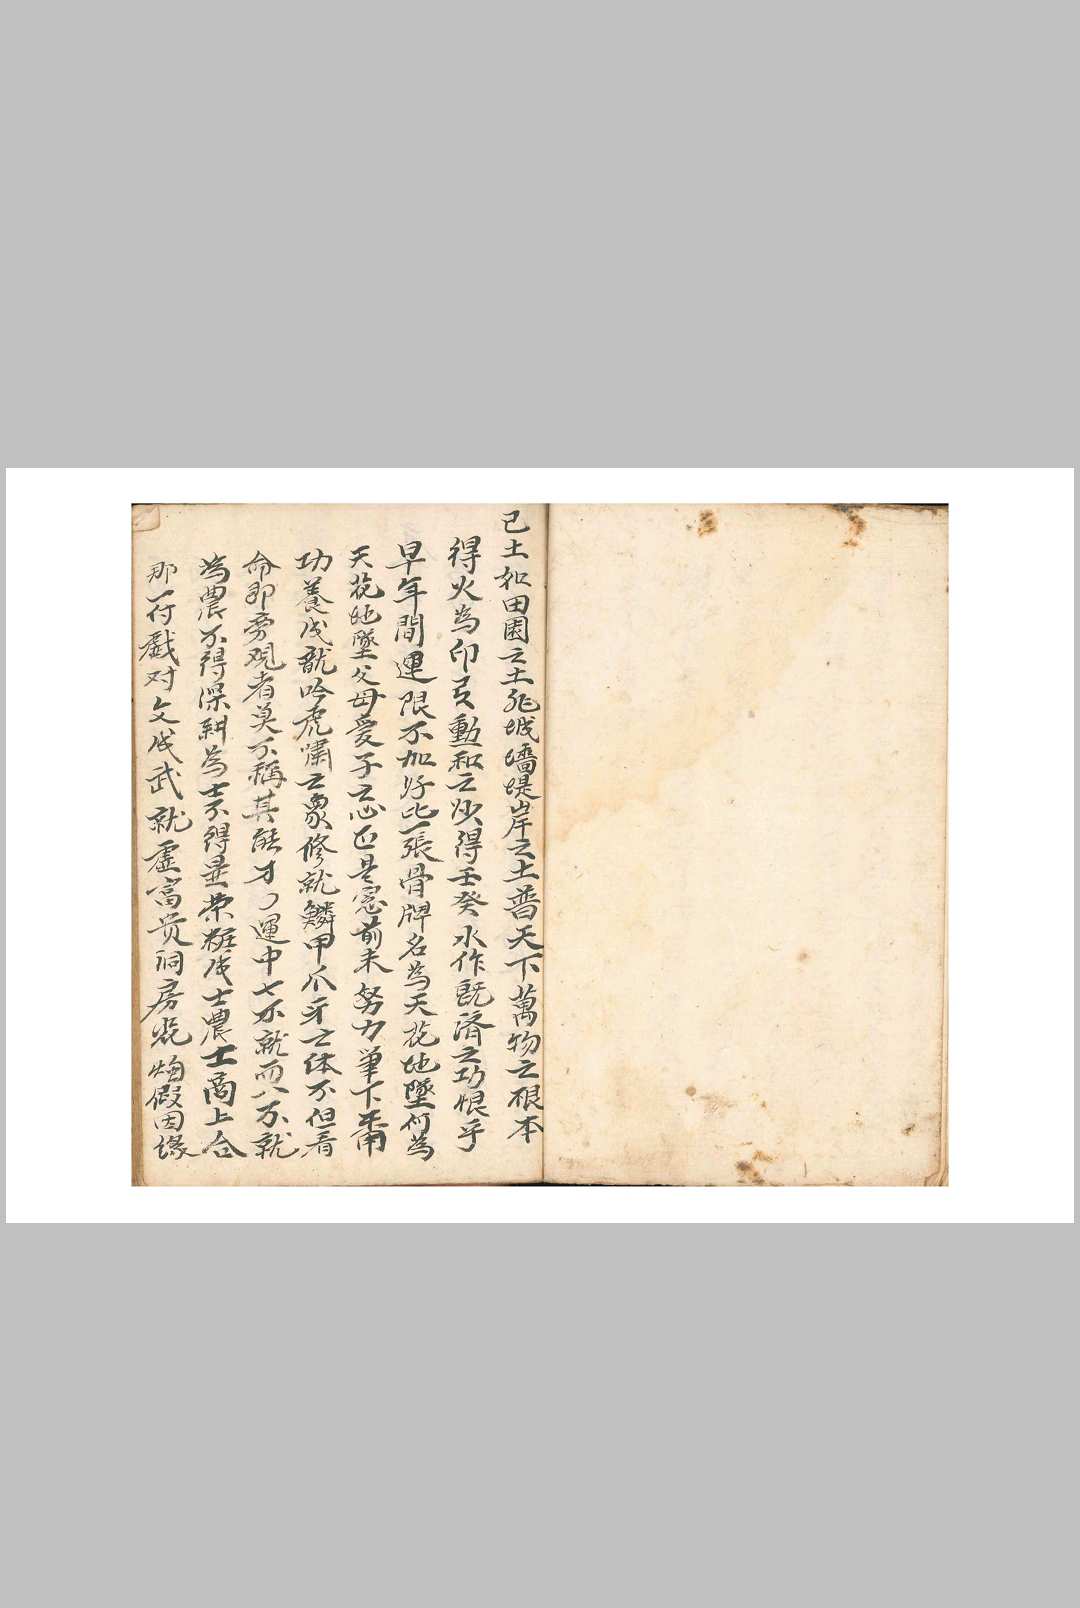 己土如田園之土非城墻堤岸之土普天下萬物之根本
得火為印爻動和之以得壬癸水作既濟之功恨乎
早年間運限不加好比一張骨牌名為天花地墜何為
天花地墜父母愛子之心正是窓前未努力筆下兩
功養成龍吟虎嘯之象修就鱗甲爪牙之体不但看
命即旁观者莫不稱其能才运中七不就而八不就
為農不得深耕為士不得显荣粧成士農士商上台
那一行戲对文成武就虛富贵洞房花燭假因緣